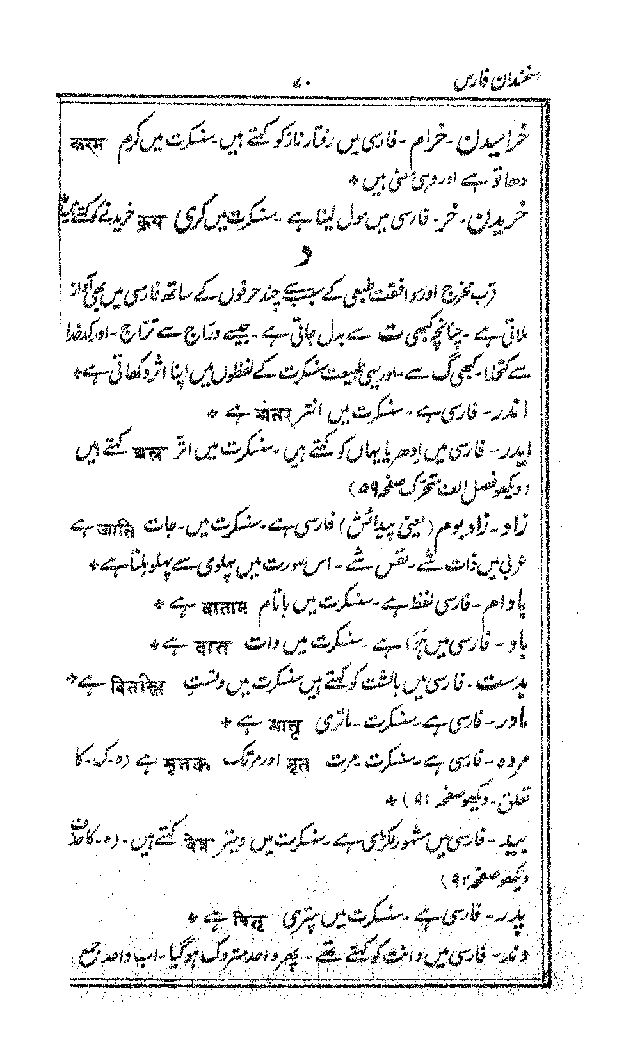 سخندان فارس
۷۰
خرامیدن - خرام - فارسی میں رفتار ناز کو کہتے ہیں - سنسکرت میں کرم करम
دھاتو ہے اور وہی معنی ہیں *
خریدن - خر - فارسی میں مول لینا ہے - سنسکرت میں کری क्रय خریدنے کو کہتے ہیں
د
قرب مخرج اور موافقت طبعی کے سبب سے چند حرفوں کے ساتھ فارسی میں بھی آواز
ملاتی ہے - چنانچہ کبھی ت سے بدل جاتی ہے - جیسے دراج سے تراج - اور کدخدا
سے کتخدا - کبھی گ سے - اور یہی طبیعت سنسکرت کے لفظوں میں اپنا اثر دکھاتی ہے *
اندر - فارسی ہے - سنسکرت میں انتر अंतर ہے *
ایدر - فارسی میں ادھر یا یہاں کو کہتے ہیں - سنسکرت میں اتر अत्र کہتے ہیں
(دیکھو فصل الف متحرک صفحہ ۵۹)
زاد - زاد بوم (یعنی پیدائش) فارسی ہے - سنسکرت میں - جات जाति ہے
عربی میں ذات شے - نفس شے - اس صورت میں پہلوی سے پہلو ملتا ہے *
بادام - فارسی لفظ ہے - سنسکرت میں باتام बाताम ہے *
باد - فارسی میں ہوا ہے سنسکرت میں وات वात ہے *
بدست - فارسی میں بالشت کو کہتے ہیں سنسکرت میں وتست वितस्ति ہے *
مادر - فارسی ہے سنسکرت - ماتری मातृ ہے *
مردہ - فارسی ہے - سنسکرت مرت मृत اور مرتک मृतक ہے (ہ - ک - کا
تعلق - دیکھو صفحہ ۹۱) *
بید - فارسی میں مشہور لکڑی ہے - سنسکرت میں ویتر वेत्र کہتے ہیں - (ہ - کا حذف
دیکھو صفحہ ۹۲)
پدر - فارسی ہے - سنسکرت میں پتری पितृ ہے *
دند - فارسی میں دانت کو کہتے تھے - پھر واحد متروک ہو گیا - اب واحد جمع